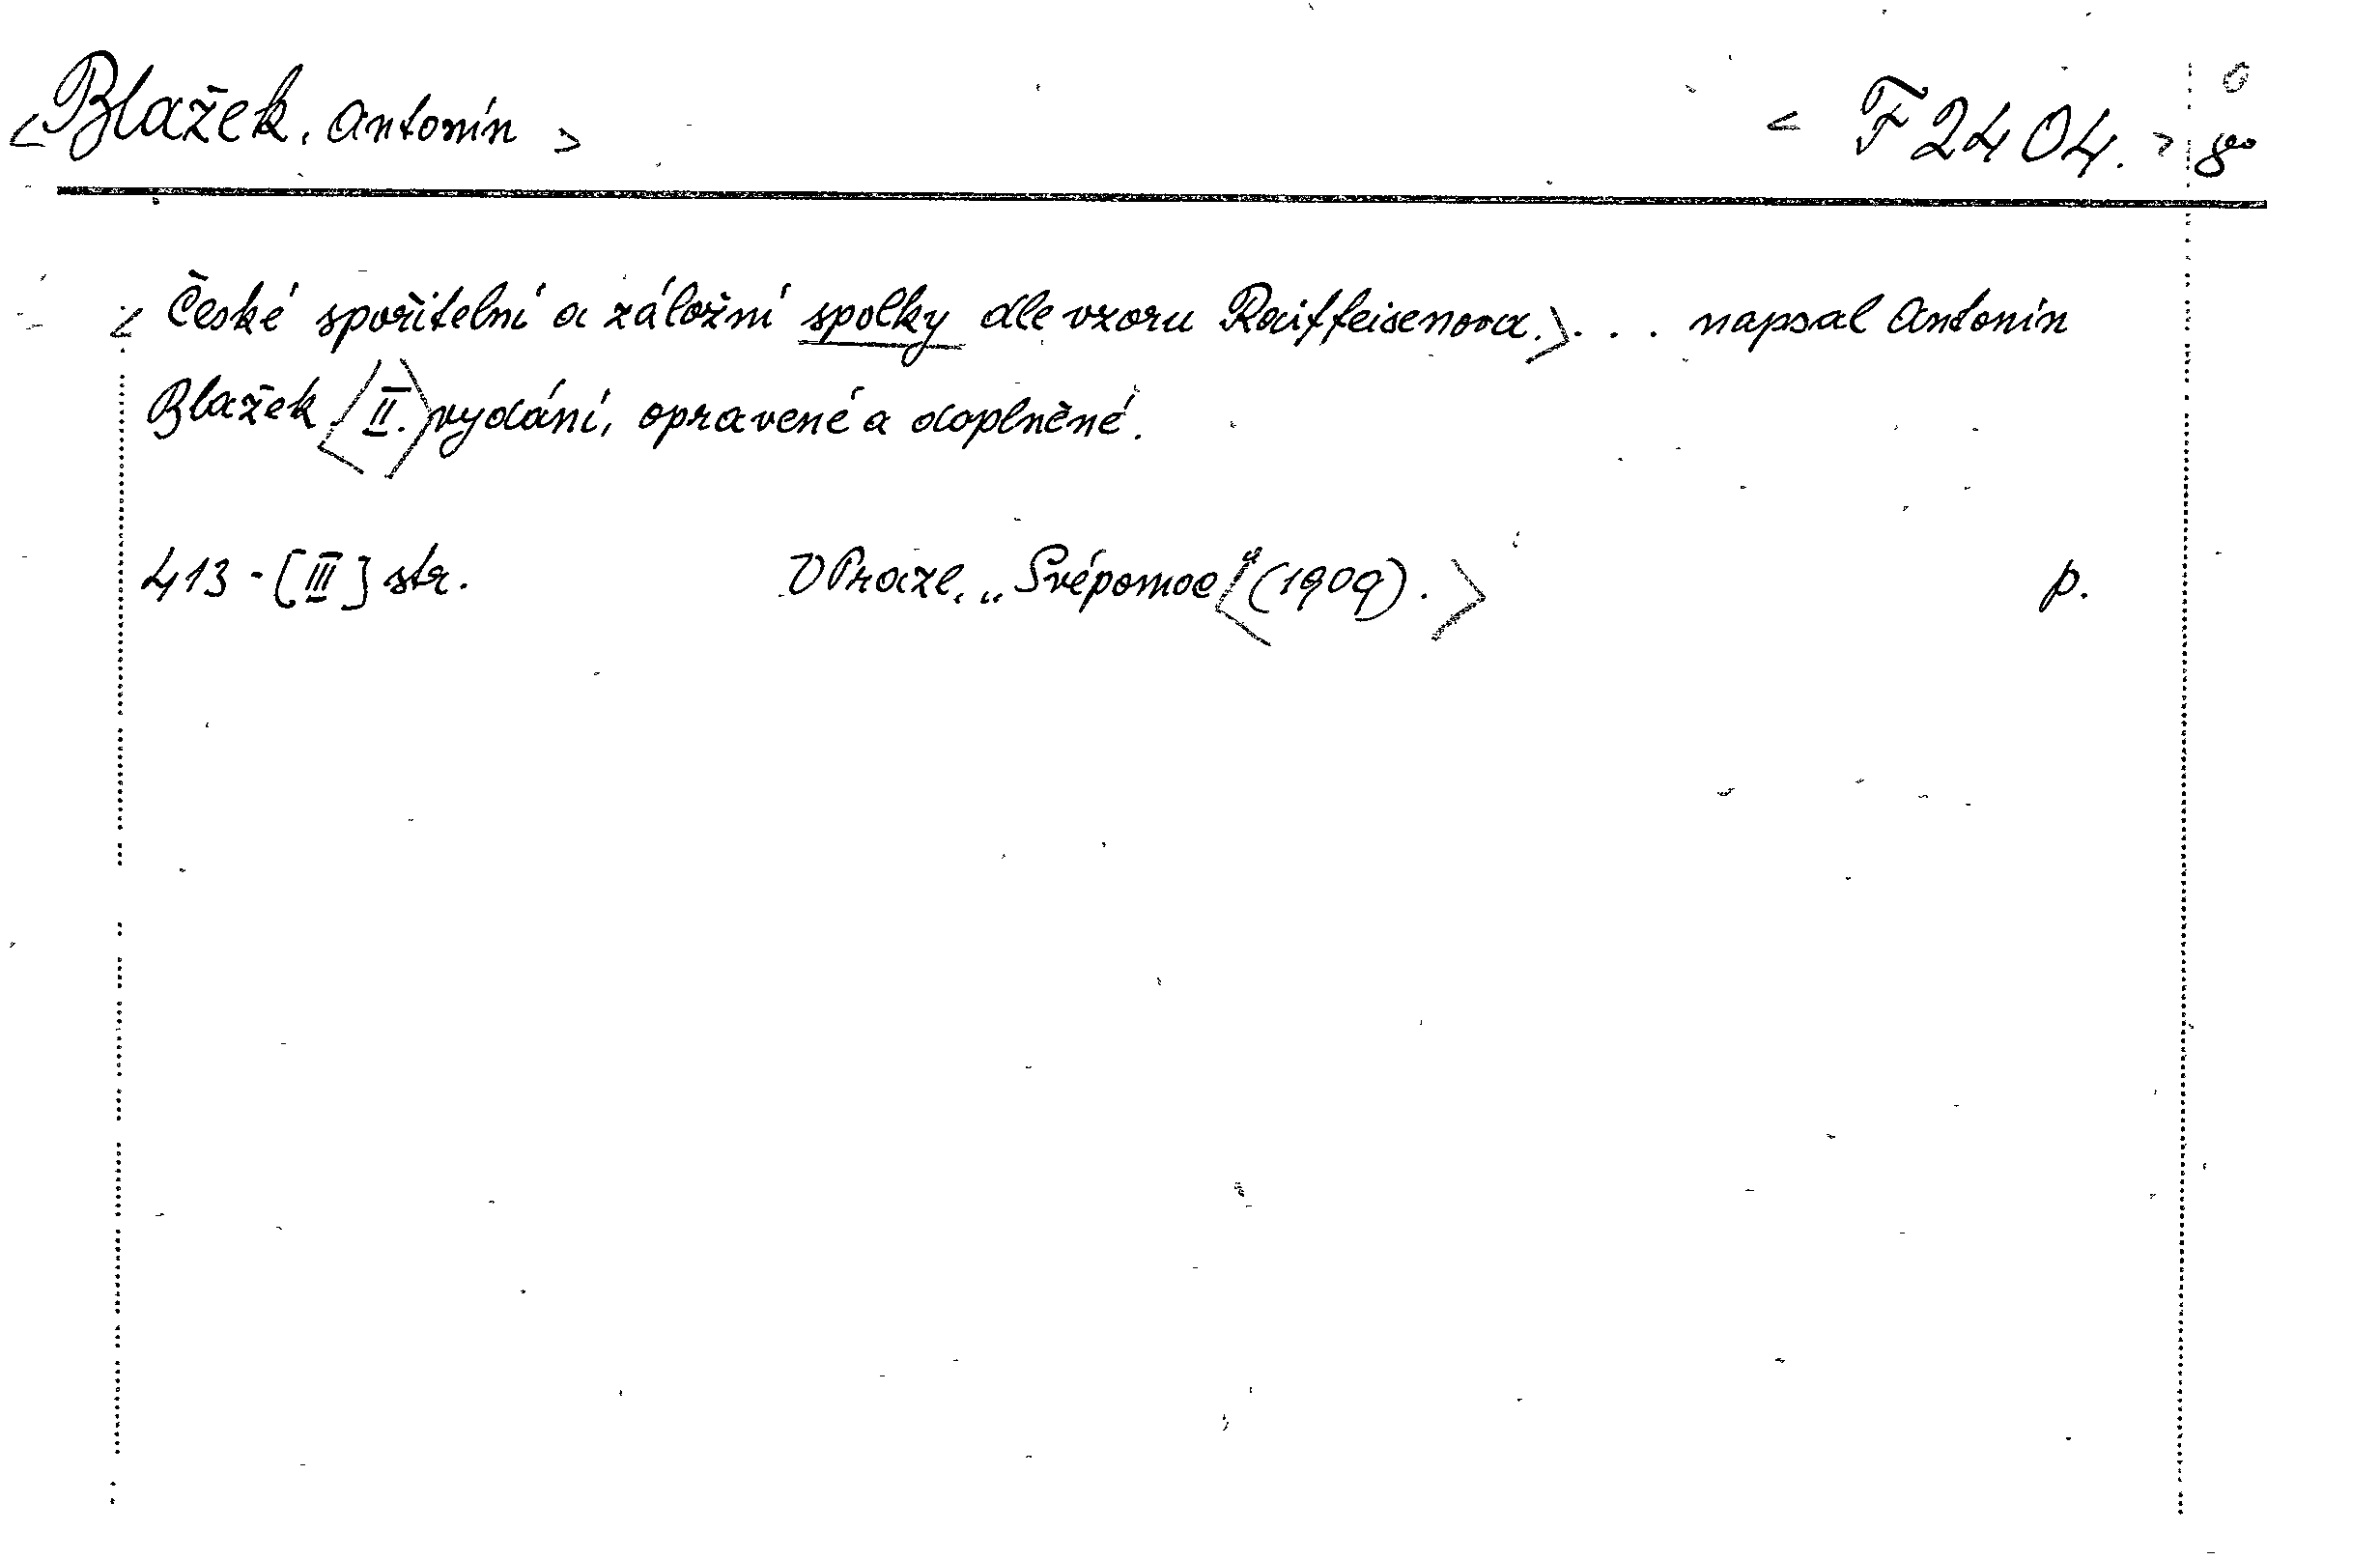 <Blažek, Antonín> <F 2404.> 8°
<České spořitelní a záložní spolky dle vzoru Raiffeisenova.> . . . napsal Antonín
Blažek. <II.> vydání, opravené a doplněné.
413-[III] str. V Praze, „Svépomoc“ <(1909).> p.